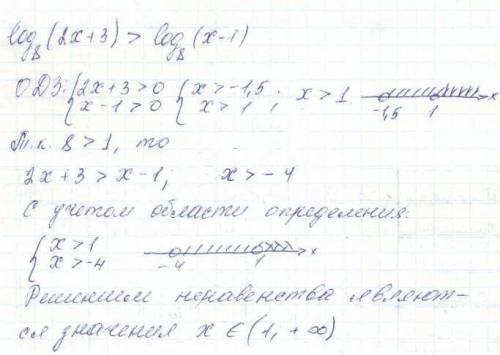 log₈(2x+3) > log₈(x-1)
ОДЗ: {2x+3>0 {x>-1,5 ; x>1 -1,5 1 x
{x-1>0 {x>1
Т.к. 8>1, то
2x+3 > x-1; x>-4
С учетом области определения:
{x>1
{x>-4 -4 1 x
Решением неравенства являют-
ся значения x ∈ (1, +∞)